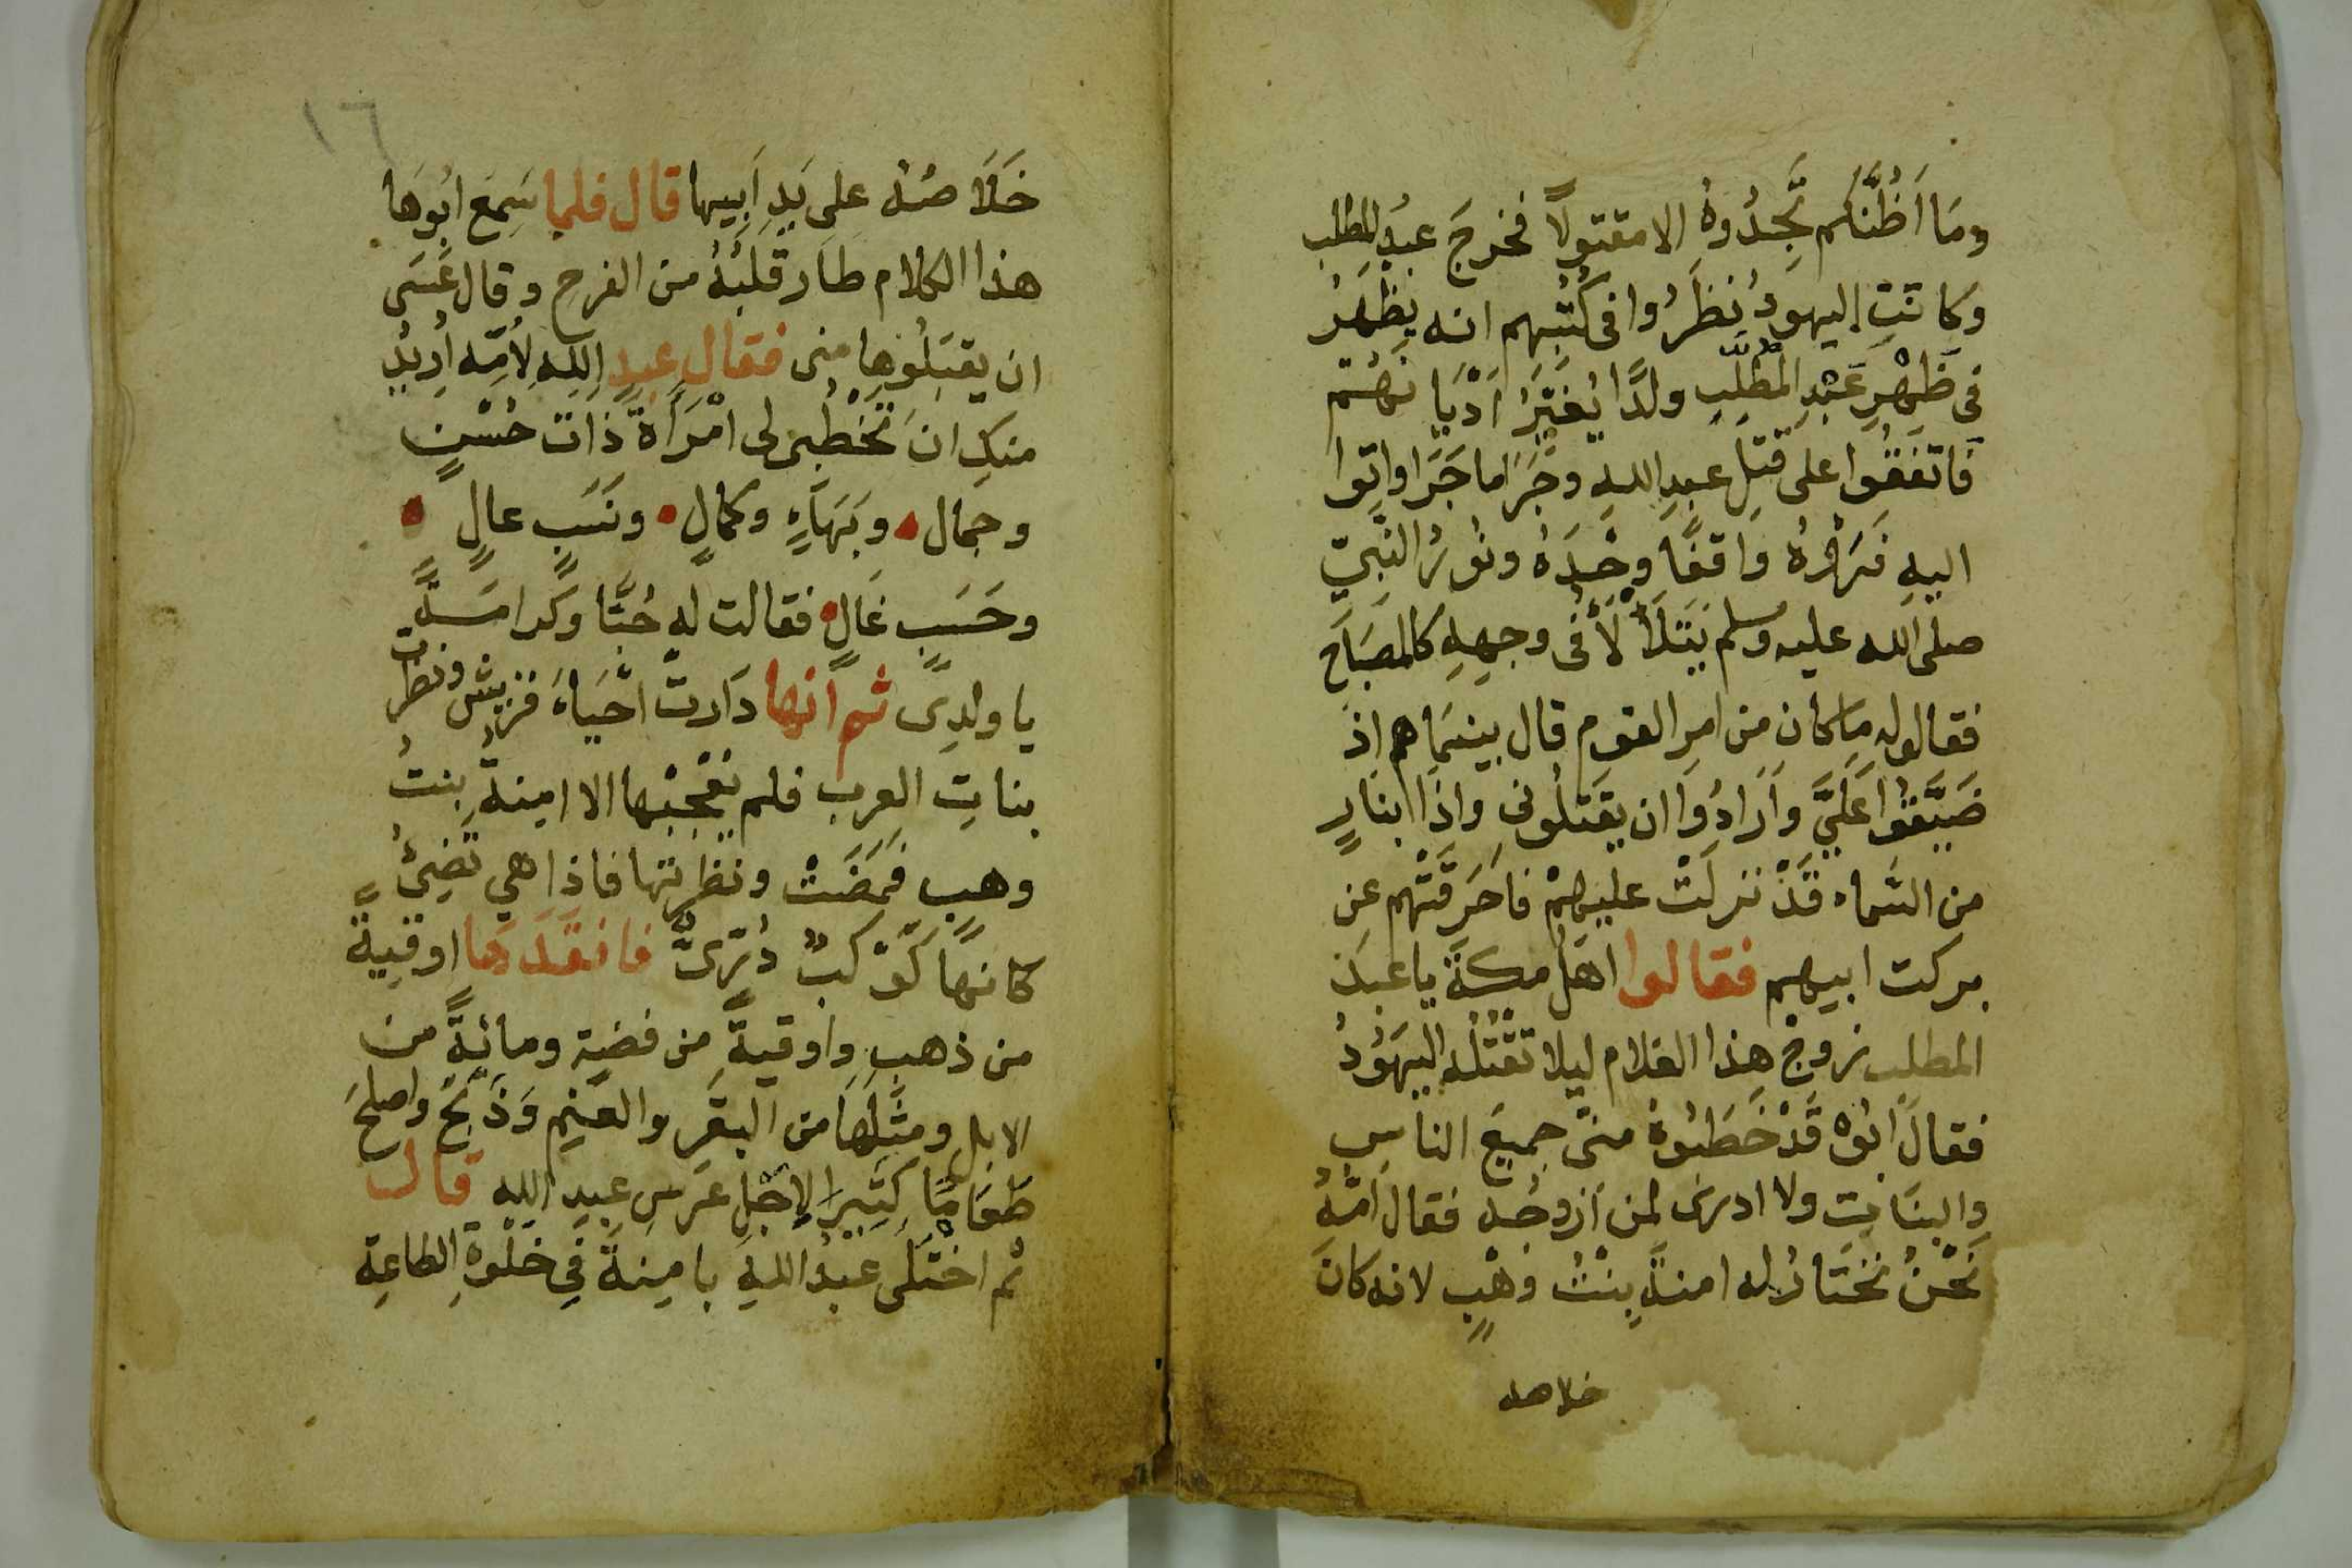 ومَا اَظُنُّكم تَجِدُوهُ الا مقتولاً فخرجَ عبدُ المطلب
وكانتِ اليهودُ نظَرُوا فى كُتُبِهم انه يظهَرُ
فى ظَهْرِ عَبْدِ المُطَّلِّبِ ولدًا يُغَيِّرُ اَدْيَانهُم
فَاتفَقُوا على قتلِ عبدِ اللهِ وجَرَا ما جَرَا واتوا
اليهِ فَرَاَوْهُ وَاقفًا وحْدَهُ ونُورُ النَّبِيّ
صلى الله عليه وسلم يَتَلَأْ لَأُ فى وجهِهِ كالمصَبَاحِ
فقالوله ما كان من امرِ القوم قال بينمَا هم اذ
ضَيَّقُوا عَلَيَّ واَرَادُوا ان يقتلُونى واذا بنارٍ
من السَّماء قَدْ نزلَتْ عليهمْ فاحَرَقَتْهم عن
بركت ابيهم فقالوا اهَل مكةَ يا عبدَ
المطلب زوجْ هذا الغلام ليلا تقْتُلُه اليهَوُدُ
فقالَ ابُوهْ قَدْ خَطَبُوهْ منى جميعَ الناسِ
والبنَاتِ ولا ادرى لمن اَزوجُه فقال اُمّهُ
نَحْنُ نختَارُ له امنةَ بِنْتُ وهْبٍ لانه كانَ
خلاصه
١٦
خَلَاَصُهُ على يَدِ اَبِيها قال فلما سَمِعَ ابُوهَا
هذا الكلام طار قلبُهُ من الفرح وقال عَسَى
ان يقبَلُوها منى فقال عبد الله لِأُمّه اُريدُ
منكِ انَ تخْطُبى لى امْرَاَةً ذَاتَ حُسْنٍ
وجمال وبَهَاءٍ وكمالٍ ونَسَبٍ عالٍ
وحَسَبٍ غَالٍ فقالت له حُبًّا وكرامَــةً
يا ولدِى ثم اَنها دَارتْ احْيَاءَ قريشٍ ونظرت
بناتِ العرب فلم يعْجبْها الا امِينةُ بنتُ
وهبٍ فمَضَتْ ونظرتها فاذا هي تُضِئُ
كانهَا كَوْكَبٌ دُرِّىٌّ فانقَدَهَا اوقيةً
من ذهبٍ واوقيةً من فضةٍ ومائةً من
الابل ومثلَهَا من البقَرِ والغنمِ وَذَبَحَ واصلحَ
طَعَامًا كثِيرًا لاجْلِ عرَسِ عبدِ اللهِ قال
ثم اخْتَلَى عَبْدُ اللهِ بامِينةَ فِي خلْوةِ الطاعةِ